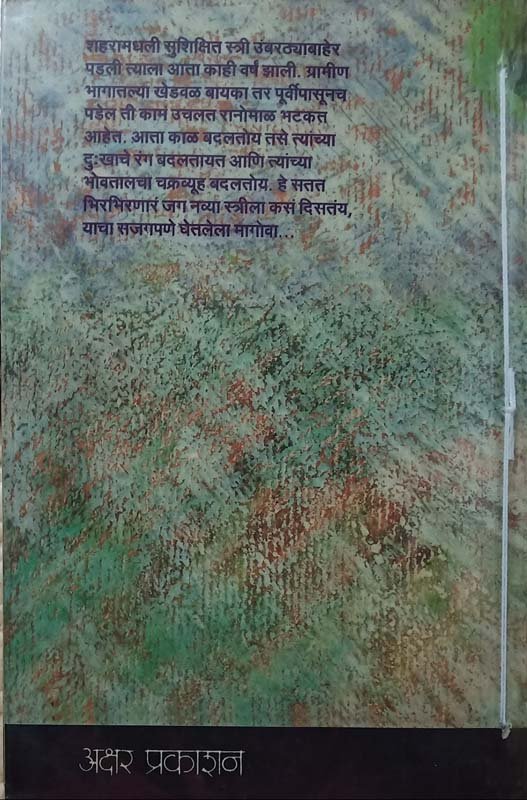 शहरामधली सुशिक्षित स्त्री उंबरठ्याबाहेर
पडली त्याला आता काही वर्षं झाली. ग्रामीण
भागातल्या खेडवळ बायका तर पूर्वीपासूनच
पडेल ती कामं उचलत रानोमाळ भटकत
आहेत. आता काळ बदलतोय तसे त्यांच्या
दुःखाचे रंग बदलतायत आणि त्यांच्या
भोवतालचा चक्रव्यूह बदलतोय. हे सतत
भिरभिरणारं जग नव्या स्त्रीला कसं दिसतंय,
याचा सजगपणे घेतलेला मागोवा...
अक्षर प्रकाशन